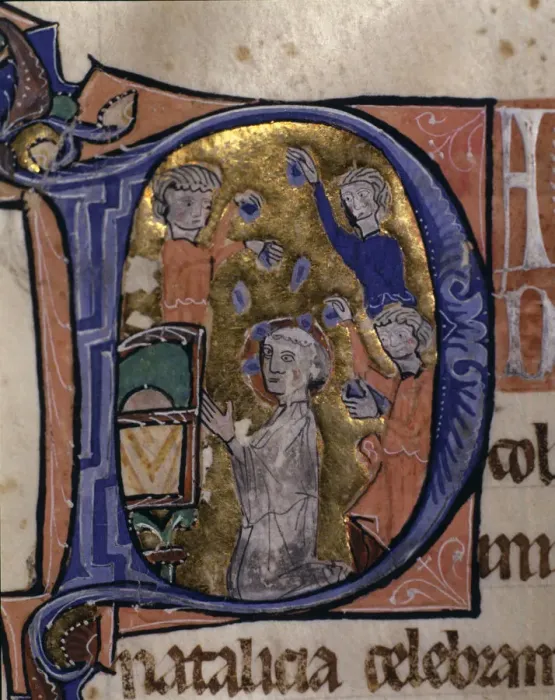 DA
D
col
natalicia celebram